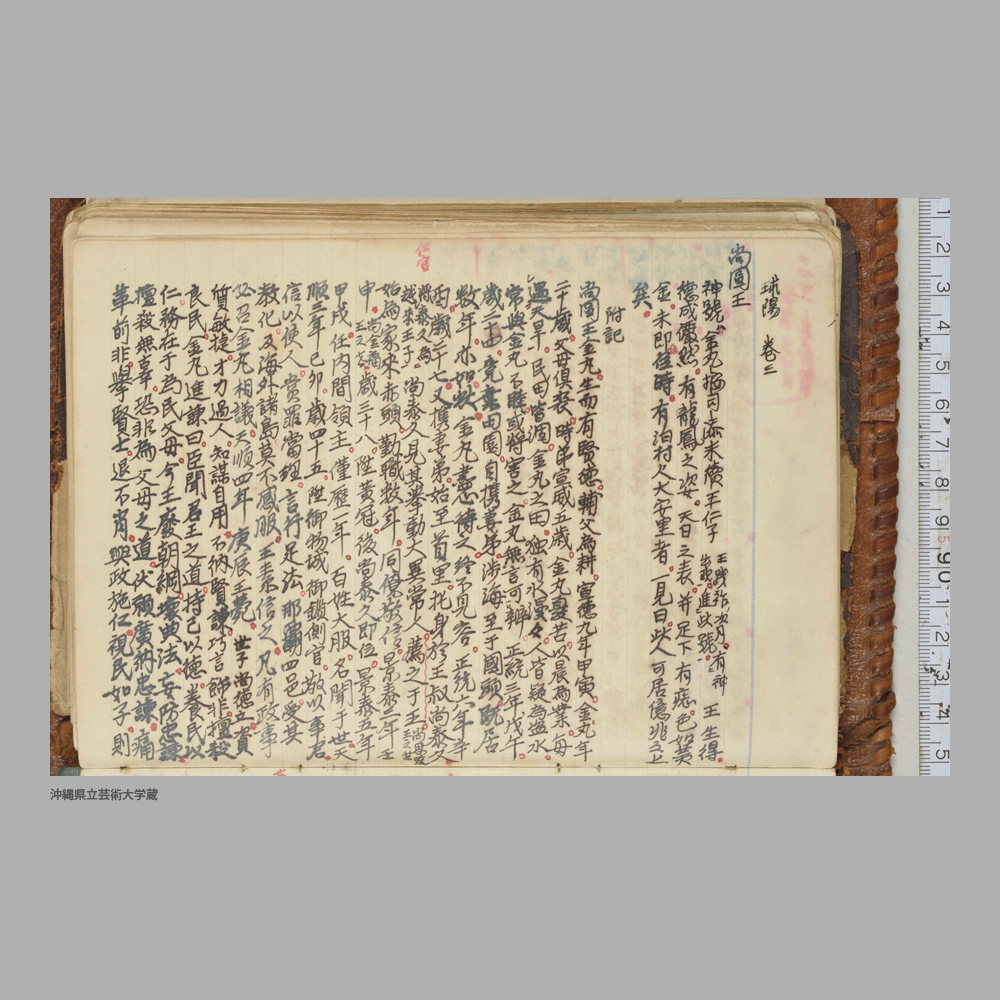 球陽 卷三
尚圓王
神號金丸按司添末續王仁子 王踐祚次月有神出現進此號 王生得
德成嚴然有龍鳳之姿天日之表并足下有痣色如黃
金未即位時有泊村人大安里者一見曰此人可居億兆之上
矣
附記
尚圓王金丸生而有賢德輔父為耕宣德九年甲寅金丸年
二十歲父母俱喪時弟宣威五歲金丸憂苦以農為業每
遇天旱民田皆涸金丸之田獨有水漫々人皆疑為盜水
常與金丸不睦或將害之金丸無言可辨正統三年戊午
歲二十四竟棄田園自携妻弟涉海至于國頭既居
數年亦如此金丸悉待之終不見容正統六年辛
酉歲二十七又携妻弟始至首里托身於王叔尚泰久
尚泰久為越來王子 尚泰久見其舉動大異常人薦之于王
始為家來赤頭勤職數年同僚敬信景泰三年壬
申 歲三十八陞黃冠後尚泰久即位景泰五年
甲戌任内間領主僅歷一年百姓大服名聞于世天
順三年己卯歲四十五陞御物城御鎖側官敬以事君
信以使人賞罪當理言行足法那霸四邑受其
教化及海外諸島莫不感服王素信之凡有政事
必召金丸相議天順四年庚辰王薨世子尚德立資
質敏捷才力過人知謀自用不納賢諫巧言飾非擅殺
良民金丸進諫曰臣聞君王之道持己以德養民以
仁務在于為民父母今王廢朝綱壞典法妄防忠諫
擅殺無辜恐非為父母之道伏願廣納忠諫痛
革前非舉賢士退不肖興政施仁視民如子則
沖縄県立芸術大学蔵